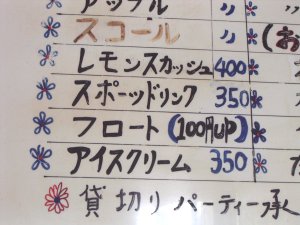 アップル 〃 〃
スコール 〃 (お
レモンスカッシュ 400
スポーツドリンク 350
フロート (100円up)
アイスクリーム 350
貸切り パーティー承